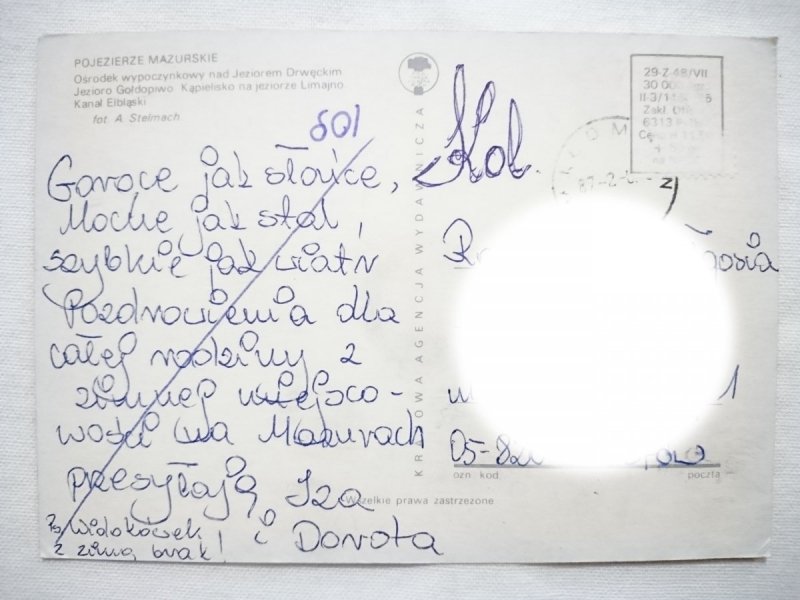 POJEZIERZE MAZURSKIE
Ośrodek wypoczynkowy nad Jeziorem Drwęckim
Jezioro Gołdopiwo Kąpielisko na jeziorze Limajno
Kanał Elbląski
fot A. Stelmach
601
Gorące jak słońce,
Mocne jak stal,
szybkie jak wiatr
Pozdrowienia dla
całej rodziny z
zimnej miejsco-
wości na Mazurach
przesyłają Iza
i Dorota
Ps Widokówek
z zimą brak!
KRAJOWA AGENCJA WYDAWNICZA
Wszelkie prawa zastrzeżone
29-Z-48/VII
30 000
II-3/1
Zakł.
6313
Cena
Kol.
Gosia
1
05-82
ozn kod
poczta